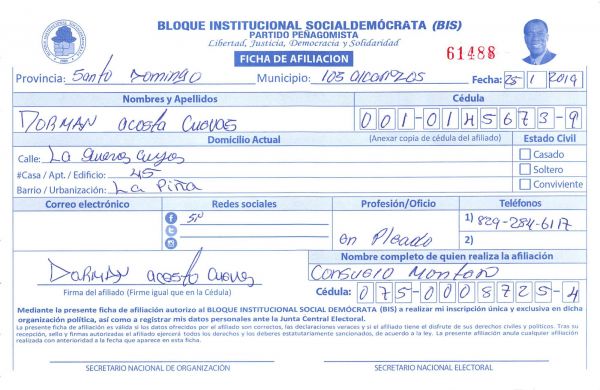 BLOQUE INSTITUCIONAL SOCIALDEMÓCRATA (BIS)
PARTIDO PEÑAGOMISTA
Libertad, Justicia, Democracia y Solidaridad
FICHA DE AFILIACION
61488
Provincia: Santo Domingo Municipio: Los alcarrizos Fecha: 25 1 2019
Nombres y Apellidos Cédula
DORMAN acosta Cuevas 001-0145673-9
Domicilio Actual (Anexar copia de cédula del afiliado) Estado Civil
Calle: La
#Casa / Apt. / Edificio: 45
Barrio / Urbanización: La Piña
Casado
Soltero
Conviviente
Correo electrónico Redes sociales Profesión/Oficio Teléfonos
en Pleado
1) 829-284-6117
2)
Nombre completo de quien realiza la afiliación
DORMAN acosta Cuevas
Consuelo Montero
Firma del afiliado (Firme igual que en la Cédula)
Cédula: 075-0008725-4
Mediante la presente ficha de afiliación autorizo al BLOQUE INSTITUCIONAL SOCIAL DEMÓCRATA (BIS) a realizar mi inscripción única y exclusiva en dicha
organización política, así como a registrar mis datos personales ante la Junta Central Electoral.
La presente ficha de afiliación es válida si los datos ofrecidos por el afiliado son correctos, las declaraciones veraces y si el afiliado tiene el disfrute de sus derechos civiles y políticos. Tras su
recepción, sello y firmas autorizadas el afiliado ejercerá todos los derechos y los deberes estatutariamente sancionados, de acuerdo a la ley. La presente afiliación anula cualquier afiliación
realizada con anterioridad a la fecha que aparece en esta ficha.
SECRETARIO NACIONAL DE ORGANIZACIÓN SECRETARIO NACIONAL ELECTORAL